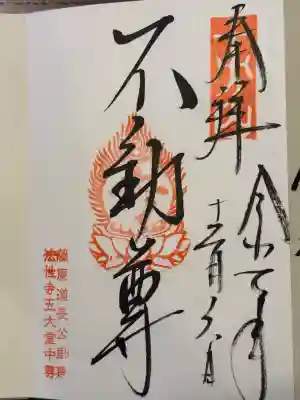 奉拝
令和元年
十二月 日
不動尊
藤原道長公創建
法性寺五大堂中尊